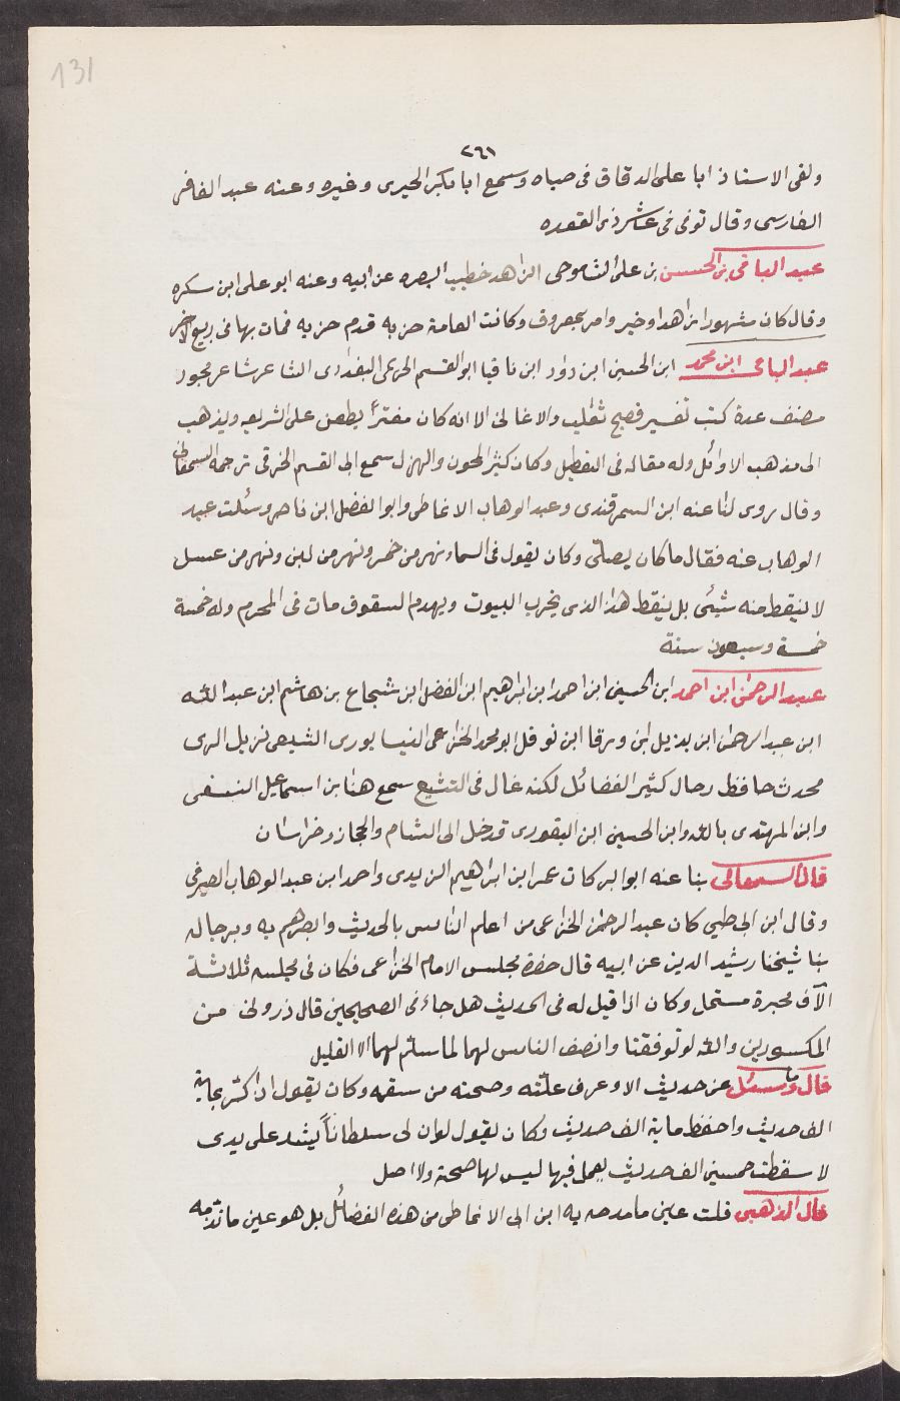 131
٢٦١
ولقى الاستاذ ابا على الدقاق فى صباه وسمع ابا بكر الحيرى وغيره وعنه عبد الغافر
الفارسى وقال توفى فى عاشر ذى القعده
عبد الباقى بن الحسن بن على الشاموحى الزاهد خطيب البصره عن ابيه وعنه ابو على ابن سكره
وقال كان مشهورا زاهدا وخير وامر بمعروف وكانت العامة حزبه قدم حزبه فمات بها فى ربيع الاخر
عبد الباقى ابن محمد ابن الحسين ابن داود ابن ناقيا ابو القسم الحريمى البغدادى الشاعر شاعر مجود
مصنف عدة كتب تفسير فصيح ثعلب والاغانى الا انه كان مفتراً يطعن على الشريعه ويذهب
الى مذهب الاوائل وله مقاله فى التعطيل وكان كثير المجون والهزل سمع ابى القسم الخرقى ترجمه السمعانى
وقال روى لنا عنه ابن السمرقندى وعبد الوهاب الانماطى وابو الفضل ابن ناصر وسئلت عبد
الوهاب عنه فقال ما كان يصلّى وكان يقول فى السماء نهر من خمر ونهر من لبن ونهر من عسل
لا ينقط منه شيئى بل ينقط هذا الذى يخرب البيوت ويهدم السقوف مات فى المحرم وله خمسة
خمسة وسبعون سنة
عبد الرحمن ابن احمد ابن الحسين ابن احمد ابن ابراهيم ابن الفضل ابن شجاع بن هاشم ابن عبد الله
ابن عبد الرحمن ابن بديل ابن ورقا ابن نوفل ابو محمد الخزاعى النيسابورى الشيعى نزيل الرى
محدث حافظ رحال كثير الفضائل لكنه غال فى التشيع سمع هنا بن اسماعيل النسفى
وابن المهتدى بالله وابن الحسين ابن النقورى قد خل الى الشام والحجاز وخراسان
قال السمعانى بنا عنه ابو البركات عمر ابن ابراهيم الزيدى واحمد ابن عبد الوهاب الصيرفى
وقال ابن ابى طى كان عبد الرحمن الخزاعى من اعلم الناس بالحديث وابصرهم به وبرجاله
بنا شيخنا رشيد الدين عن ابيه قال حضرة مجلس الامام الخزاعى فكان فى مجلسه ثلاثة
الآف محبرة مستمل وكان اذا قيل له فى الحديث هل جاء فى الصحيحين قال ذرونى من
المكسورين والله لو توفقنا وانصف الناس لهما لما سلم لهما الا القليل
قال وما سئل عن حديث الا وعرف علّته وصحته من سقمه وكان يقول اذاكر بماية
الف حديث واحفظ ماية الف حديث وكان يقول لو ان لى سلطاناً يشد على يدى
لا سقطت خمسين الف حديث يعمل فيها ليس لها صحة ولا اصل
قال الذهبى قلت عين ما مدحه به ابن ابى الانماطى من هذه الفضائل بل هو عين ما تذمه